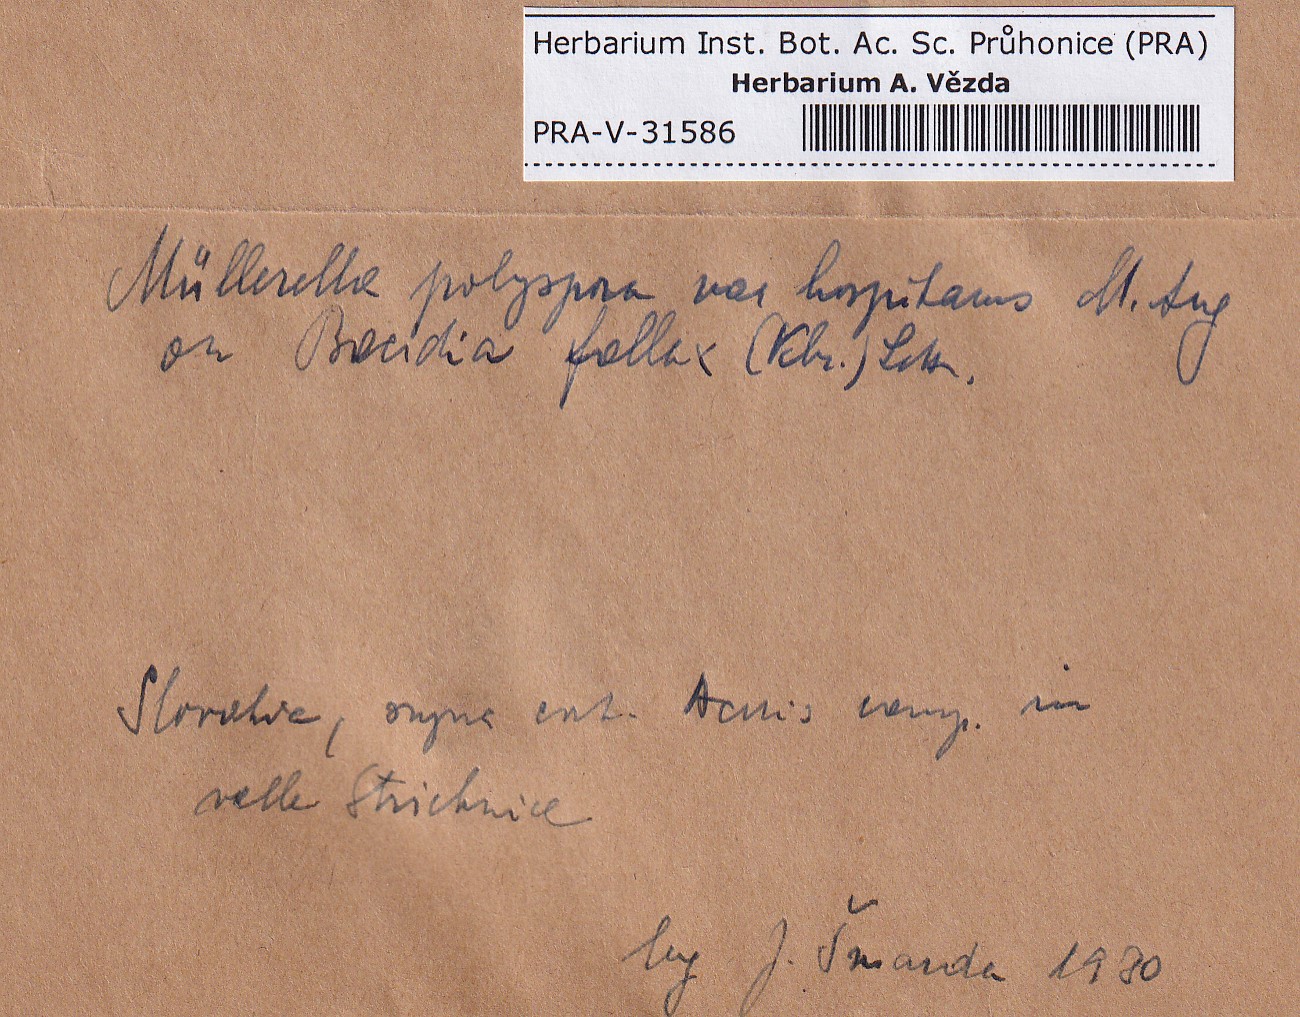 Herbarium Inst. Bot. Ac. Sc. Průhonice (PRA)
Herbarium A. Vězda
PRA-V-31586
Müllerella polyspora var hospitans M. Ang
on Bacidia fallax (Kbr.) Lett.
Slovakia, supra cort. Aceris camp. in
valle Strichnice
leg J. Šmarda 1930